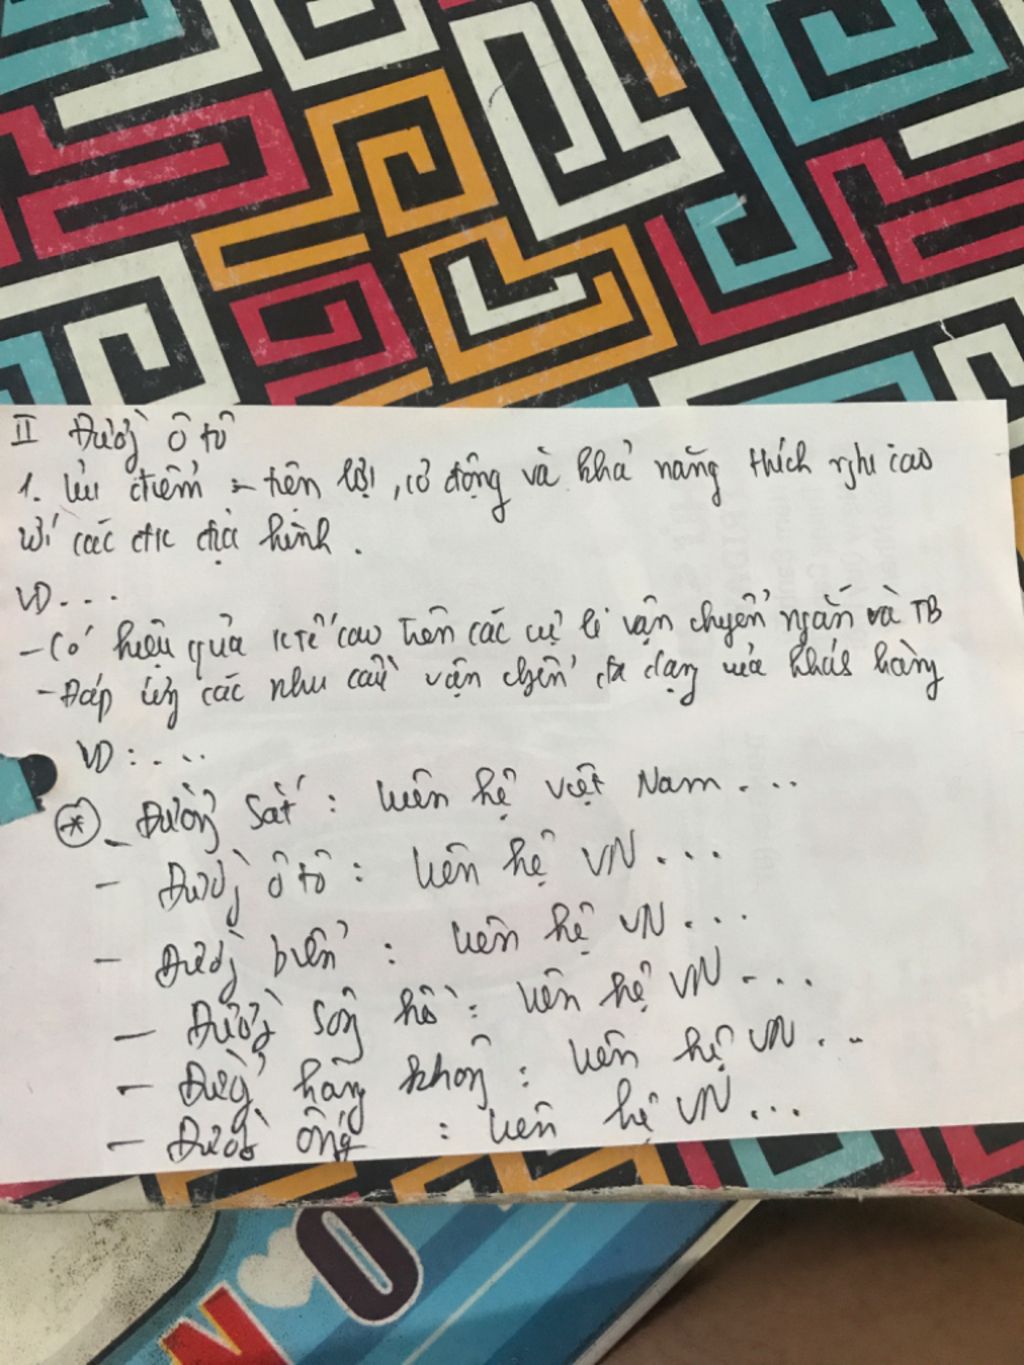 II Đường ô tô
1. Ưu điểm: - tiện lợi, cơ động và khả năng thích nghi cao
với các đk địa hình.
VD...
- Có hiệu quả KTế cao trên các cự li vận chuyển ngắn và TB
- Đáp ứng các nhu cầu vận chuyển đa dạng của khách hàng
VD:...
* - Đường sắt: liên hệ việt Nam...
- Đường ô tô: liên hệ VN...
- Đường biển: liên hệ VN...
- Đường sông hồ: liên hệ VN...
- Đường hàng không: liên hệ VN...
- Đường ống: liên hệ VN...
NO